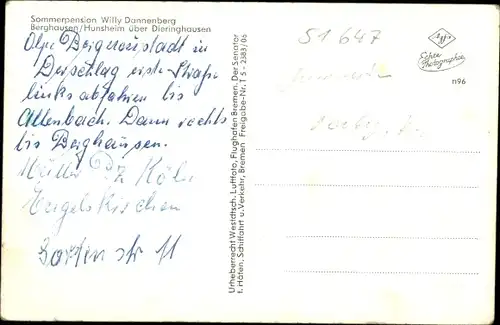 Sommerpension Willy Dannenberg
Berghausen/Hunsheim über Dieringhausen
Olpe Bergneustadt in
Derschlag erste Straße
links abfahren bis
Allenbach. Dann rechts
bis Berghausen.
Müller Köln
Engelskirchen
str 11
Urheberrecht Westdtsch. Luftfoto, Flughafen Bremen. Der Senator
f. Häfen, Schiffahrt u. Verkehr, Bremen Freigabe-Nr. T 5 - 2383/06
51 647
Agfa
Echte
Photographie
n96